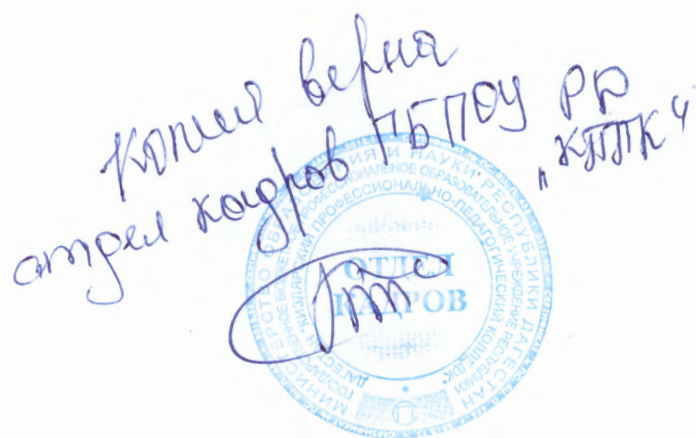 Копия верна
отдел кадров ГБПОУ РД
"КППК"
МИНИСТЕРСТВО ОБРАЗОВАНИЯ И НАУКИ РЕСПУБЛИКИ ДАГЕСТАН
ГОСУДАРСТВЕННОЕ БЮДЖЕТНОЕ ПРОФЕССИОНАЛЬНОЕ ОБРАЗОВАТЕЛЬНОЕ УЧРЕЖДЕНИЕ РЕСПУБЛИКИ
ДАГЕСТАН "КИЗЛЯРСКИЙ ПРОФЕССИОНАЛЬНО-ПЕДАГОГИЧЕСКИЙ КОЛЛЕДЖ"
ОТДЕЛ
КАДРОВ